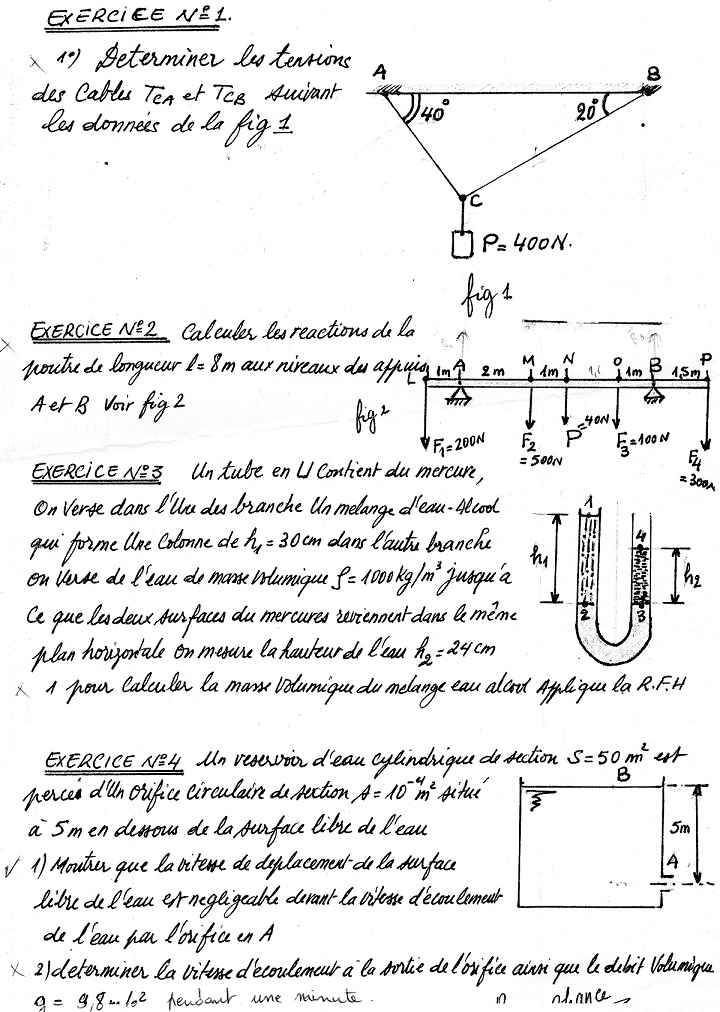 EXERCICE Nº1.
x 1º) Determiner les tensions
des Cables TCA et TCB suivant
les données de la fig 1
A B
40° 20°
C
P = 400N.
fig 1
x EXERCICE Nº2 Calculer les reactions de la
poutre de longueur l = 8m aux niveaux des appuis
A et B Voir fig 2
fig 2
L 1m A 2m M 1m N O 1m B 1,5m P
F1=200N F2=500N P=40N F3=100N F4=300N
EXERCICE Nº3 Un tube en U contient du mercure,
On verse dans l'Une des branche Un melange d'eau-Alcool
qui forme Une Colonne de h1 = 30cm dans l'autre branche
on verse de l'eau de masse volumique ρ = 1000kg/m³ jusqu'a
Ce que les deux surfaces du mercures reviennent dans le même
plan horizontale on mesure la hauteur de l'eau h2 = 24cm
x 1 pour Calculer la masse Volumique du melange eau alcool Applique la R.F.H
1
h1
2
4
h2
3
EXERCICE Nº4 Un reservoir d'eau cylindrique de section S = 50 m² est
percée d'Un Orifice Circulaire de section s = 10⁻⁴ m² situé
à 5m en dessous de la surface libre de l'eau
✓ 1) Montrer que la vitesse de deplacement de la surface
libre de l'eau est negligeable devant la vitesse d'écoulement
de l'eau par l'orifice en A
B
5m
A
x 2) determiner la vitesse d'écoulement à la sortie de l'orifice ainsi que le debit Volumique
g = 9,8 pendant une minute.